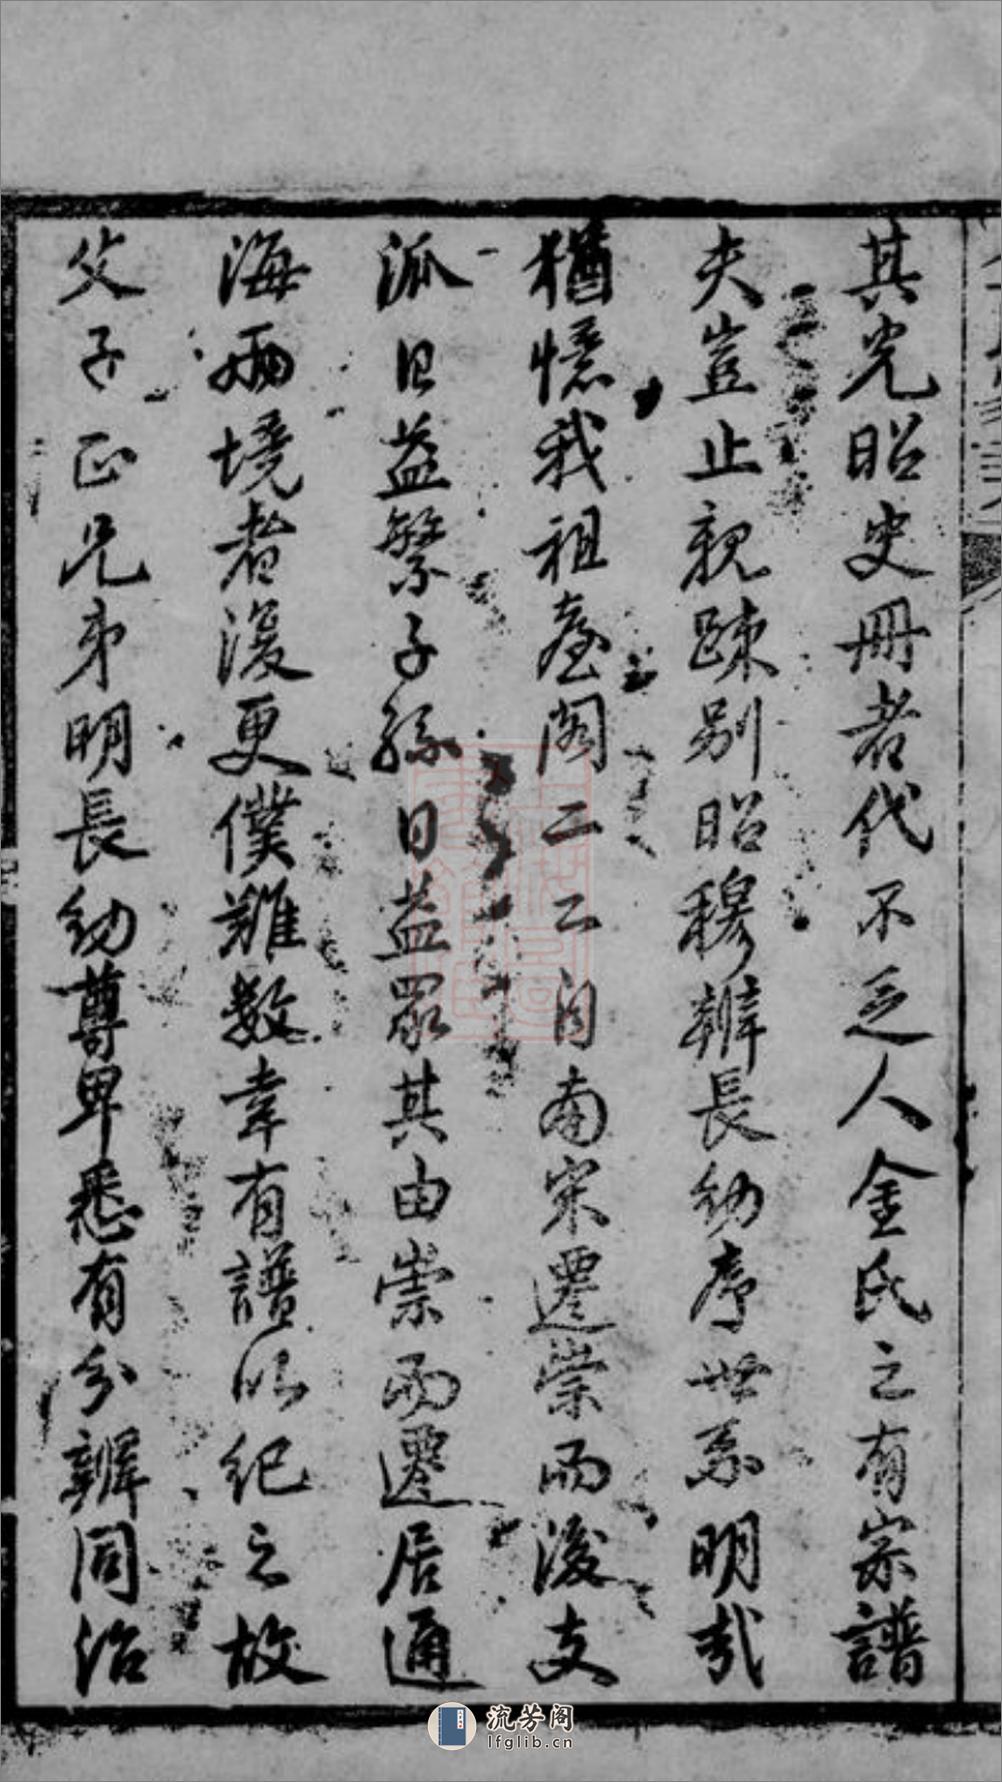 其光昭史冊者代不乏人金氏之有宗譜
夫豈止親疎别昭穆辨長幼序世系明哉
猶憶我祖臺閣二二自南宋遷崇而後支
派日益繁子孫日益眾其由崇而遷居通
海兩境者後更僕難數幸有譜以纪之故
父子正兄弟明長幼尊卑悉有分辨同治
流芳阁
lfglib.cn